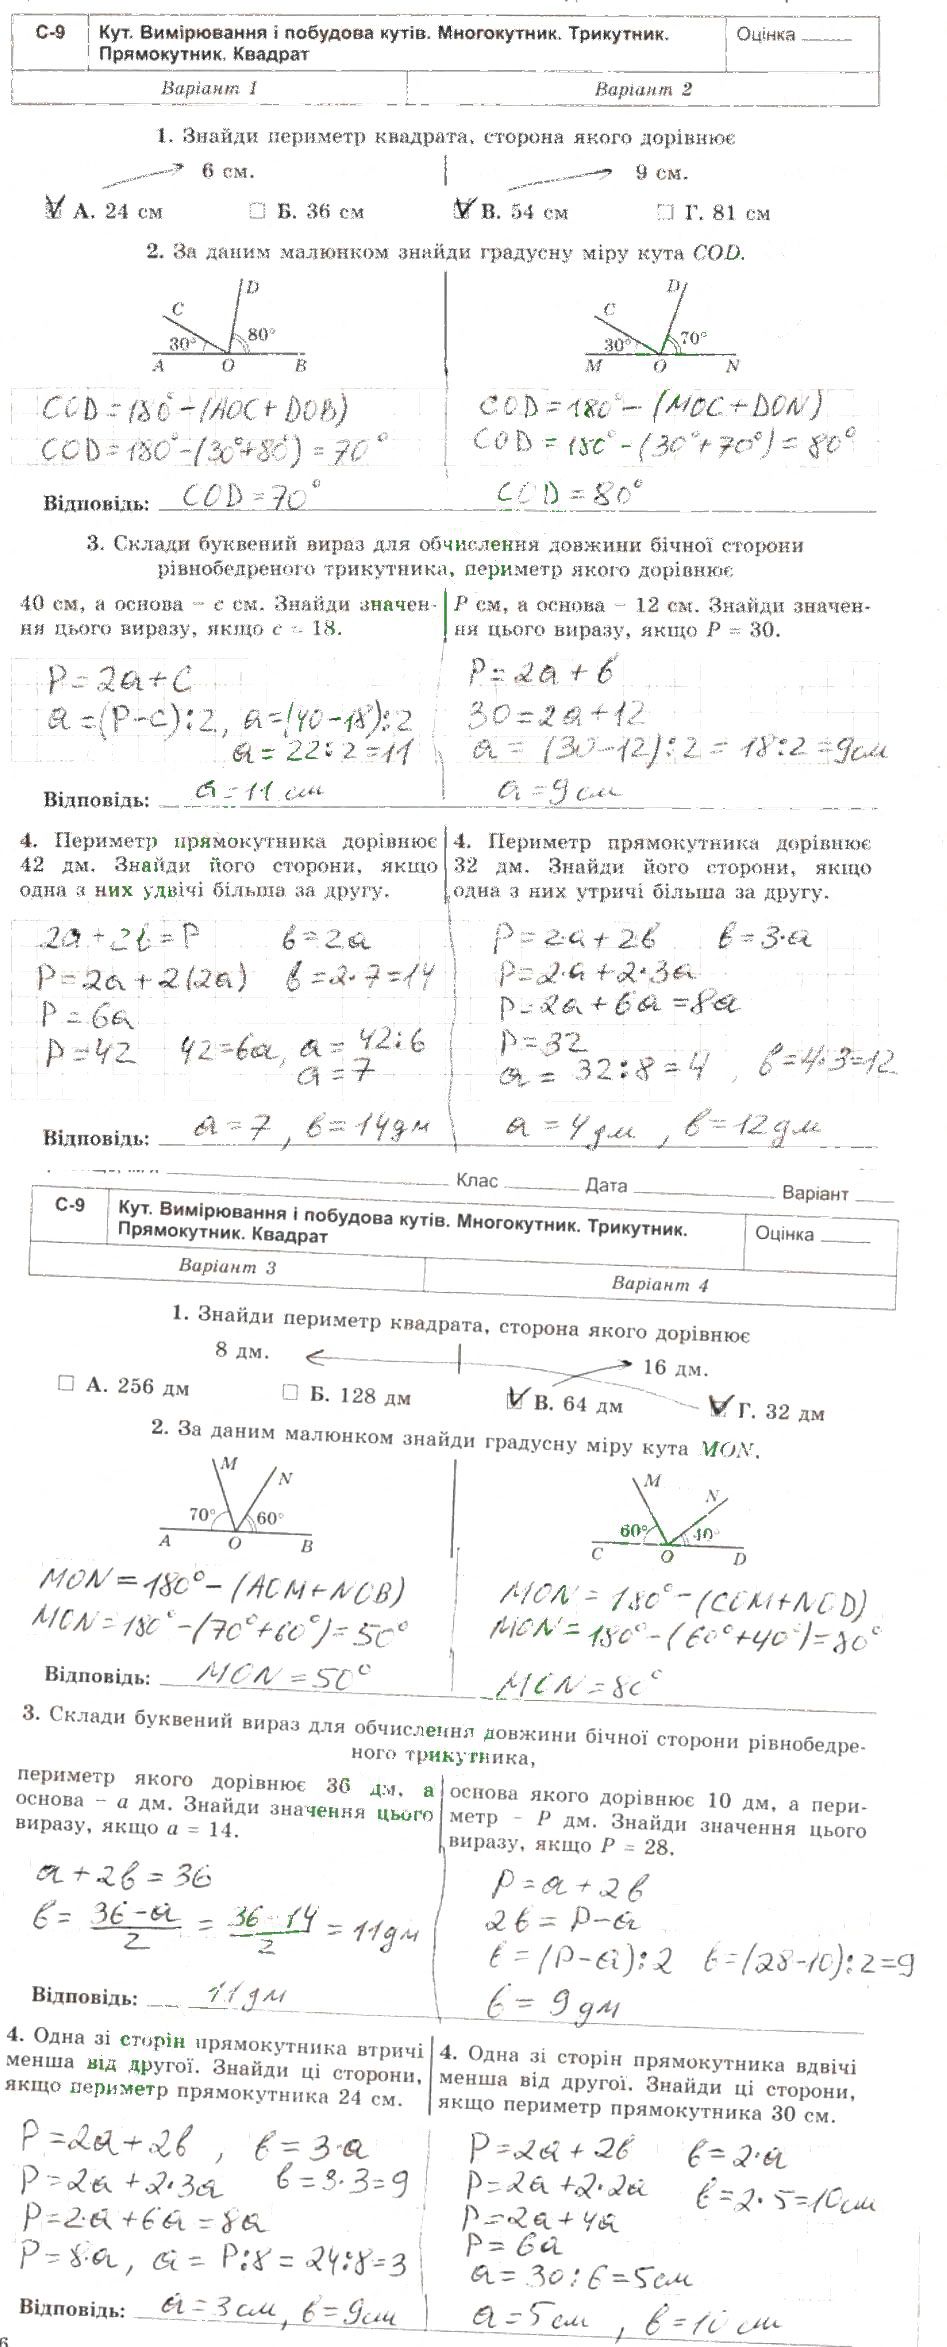 С-9 Кут. Вимірювання і побудова кутів. Многокутник. Трикутник. Оцінка
Прямокутник. Квадрат
Варіант 1 Варіант 2
1. Знайди периметр квадрата, сторона якого дорівнює
6 см. 9 см.
А. 24 см Б. 36 см В. 54 см Г. 81 см
2. За даним малюнком знайди градусну міру кута COD.
D D
C C
30° 80° 30° 70°
A O B M O N
COD = 180° - (AOC + DOB) COD = 180° - (MOC + DON)
COD = 180° - (30° + 80°) = 70° COD = 180° - (30° + 70°) = 80°
Відповідь: COD = 70° COD = 80°
3. Склади буквений вираз для обчислення довжини бічної сторони
рівнобедреного трикутника, периметр якого дорівнює
40 см, а основа – c см. Знайди значен- P см, а основа – 12 см. Знайди значен-
ня цього виразу, якщо c = 18. ня цього виразу, якщо P = 30.
P = 2a + c P = 2a + в
a = (P - c) : 2, a = (40 - 18) : 2 30 = 2a + 12
a = 22 : 2 = 11 a = (30 - 12) : 2 = 18 : 2 = 9 см
Відповідь: a = 11 см a = 9 см
4. Периметр прямокутника дорівнює 4. Периметр прямокутника дорівнює
42 дм. Знайди його сторони, якщо 32 дм. Знайди його сторони, якщо
одна з них удвічі більша за другу. одна з них утричі більша за другу.
2a + 2в = P в = 2a P = 2·a + 2в в = 3·a
P = 2a + 2(2a) в = 2·7 = 14 P = 2·a + 2·3a
P = 6a P = 2a + 6a = 8a
P = 42 42 = 6a, a = 42 : 6 P = 32
a = 7 a = 32 : 8 = 4 , в = 4·3 = 12
Відповідь: a = 7, в = 14 дм a = 4 дм , в = 12 дм
Клас Дата Варіант
С-9 Кут. Вимірювання і побудова кутів. Многокутник. Трикутник. Оцінка
Прямокутник. Квадрат
Варіант 3 Варіант 4
1. Знайди периметр квадрата, сторона якого дорівнює
8 дм. 16 дм.
А. 256 дм Б. 128 дм В. 64 дм Г. 32 дм
2. За даним малюнком знайди градусну міру кута MON.
M N M N
70° 60° 60° 40°
A O B C O D
MON = 180° - (AOM + NOB) MON = 180° - (COM + NOD)
MON = 180° - (70° + 60°) = 50° MON = 180° - (60° + 40°) = 80°
Відповідь: MON = 50° MON = 80°
3. Склади буквений вираз для обчислення довжини бічної сторони рівнобедре-
ного трикутника,
периметр якого дорівнює 36 дм, а основа якого дорівнює 10 дм, а пери-
основа – a дм. Знайди значення цього метр – P дм. Знайди значення цього
виразу, якщо a = 14. виразу, якщо P = 28.
a + 2в = 36 P = a + 2в
в = 36 - a / 2 = 36 - 14 / 2 = 11 дм 2в = P - a
в = (P - a) : 2 в = (28 - 10) : 2 = 9
Відповідь: 11 дм в = 9 дм
4. Одна зі сторін прямокутника втричі 4. Одна зі сторін прямокутника вдвічі
менша від другої. Знайди ці сторони, менша від другої. Знайди ці сторони,
якщо периметр прямокутника 24 см. якщо периметр прямокутника 30 см.
P = 2a + 2в , в = 3·a P = 2a + 2в в = 2·a
P = 2a + 2·3a в = 3·3 = 9 P = 2a + 2·2a в = 2·5 = 10 см
P = 2·a + 6a = 8a P = 2a + 4a
P = 8·a, a = P : 8 = 24 : 8 = 3 P = 6a
a = 30 : 6 = 5 см
Відповідь: a = 3 см, в = 9 см a = 5 см , в = 10 см
6